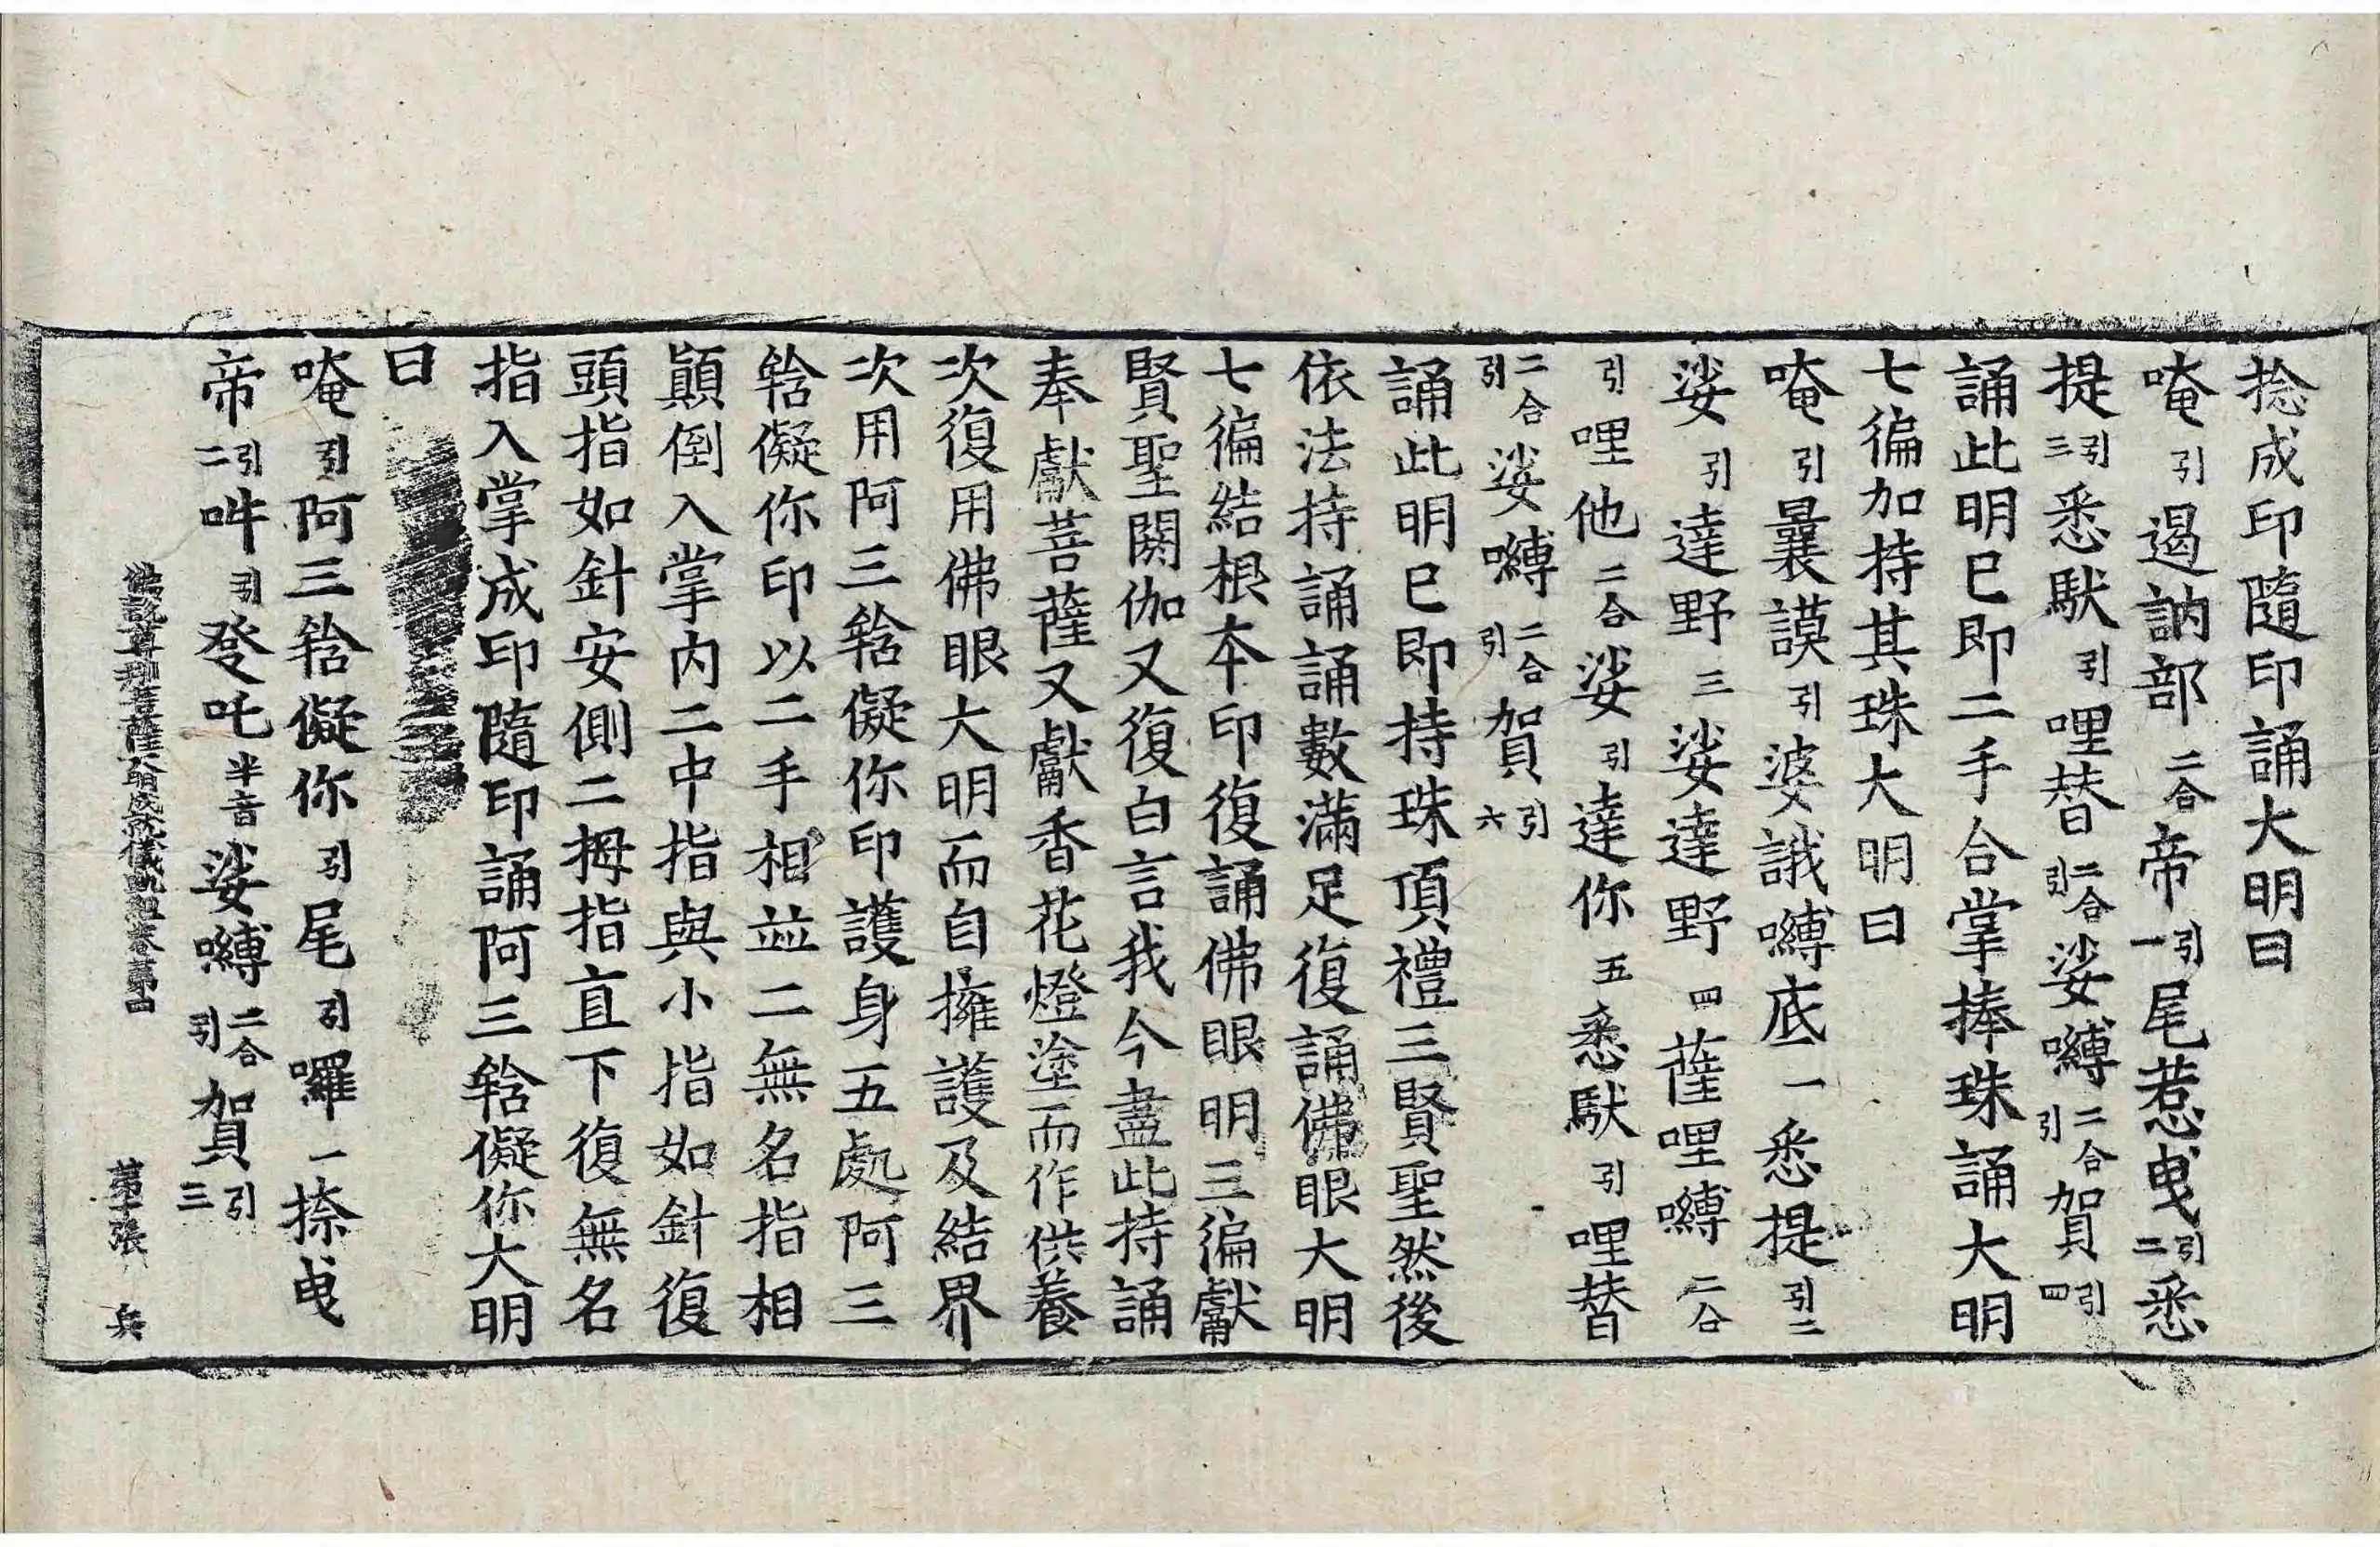 捻成印隨印誦大明曰
唵引遏訥部二合帝引一尾惹曳引二悉
提引三悉馱引哩替二合引娑嚩二合引賀引四
誦此明已即二手合掌捧珠誦大明
七徧加持其珠大明曰
唵引曩謨引婆誐嚩底一悉提引二
娑引達野三娑達野四薩哩嚩二合
引哩他二合娑引達你五悉馱引哩替
二合引娑嚩二合引賀引六
誦此明已即持珠頂禮三賢聖然後
依法持誦誦數滿足復誦佛眼大明
七徧結根本印復誦佛眼明三徧獻
賢聖閼伽又復白言我今盡此持誦
奉獻菩薩又獻香花燈塗而作供養
次復用佛眼大明而自擁護及結界
次用阿三鋡儗你印護身五處阿三
鋡儗你印以二手相並二無名指相
顛倒入掌內二中指與小指如針復
頭指如針安側二拇指直下復無名
指入掌成印隨印誦阿三鋡儗你大明
曰
唵引阿三鋡儗你引尾引囉一捺曳
帝引二吽引發吒半音娑嚩二合引賀引三
佛說尊那菩薩大明成就儀軌經卷第四 第十張 兵